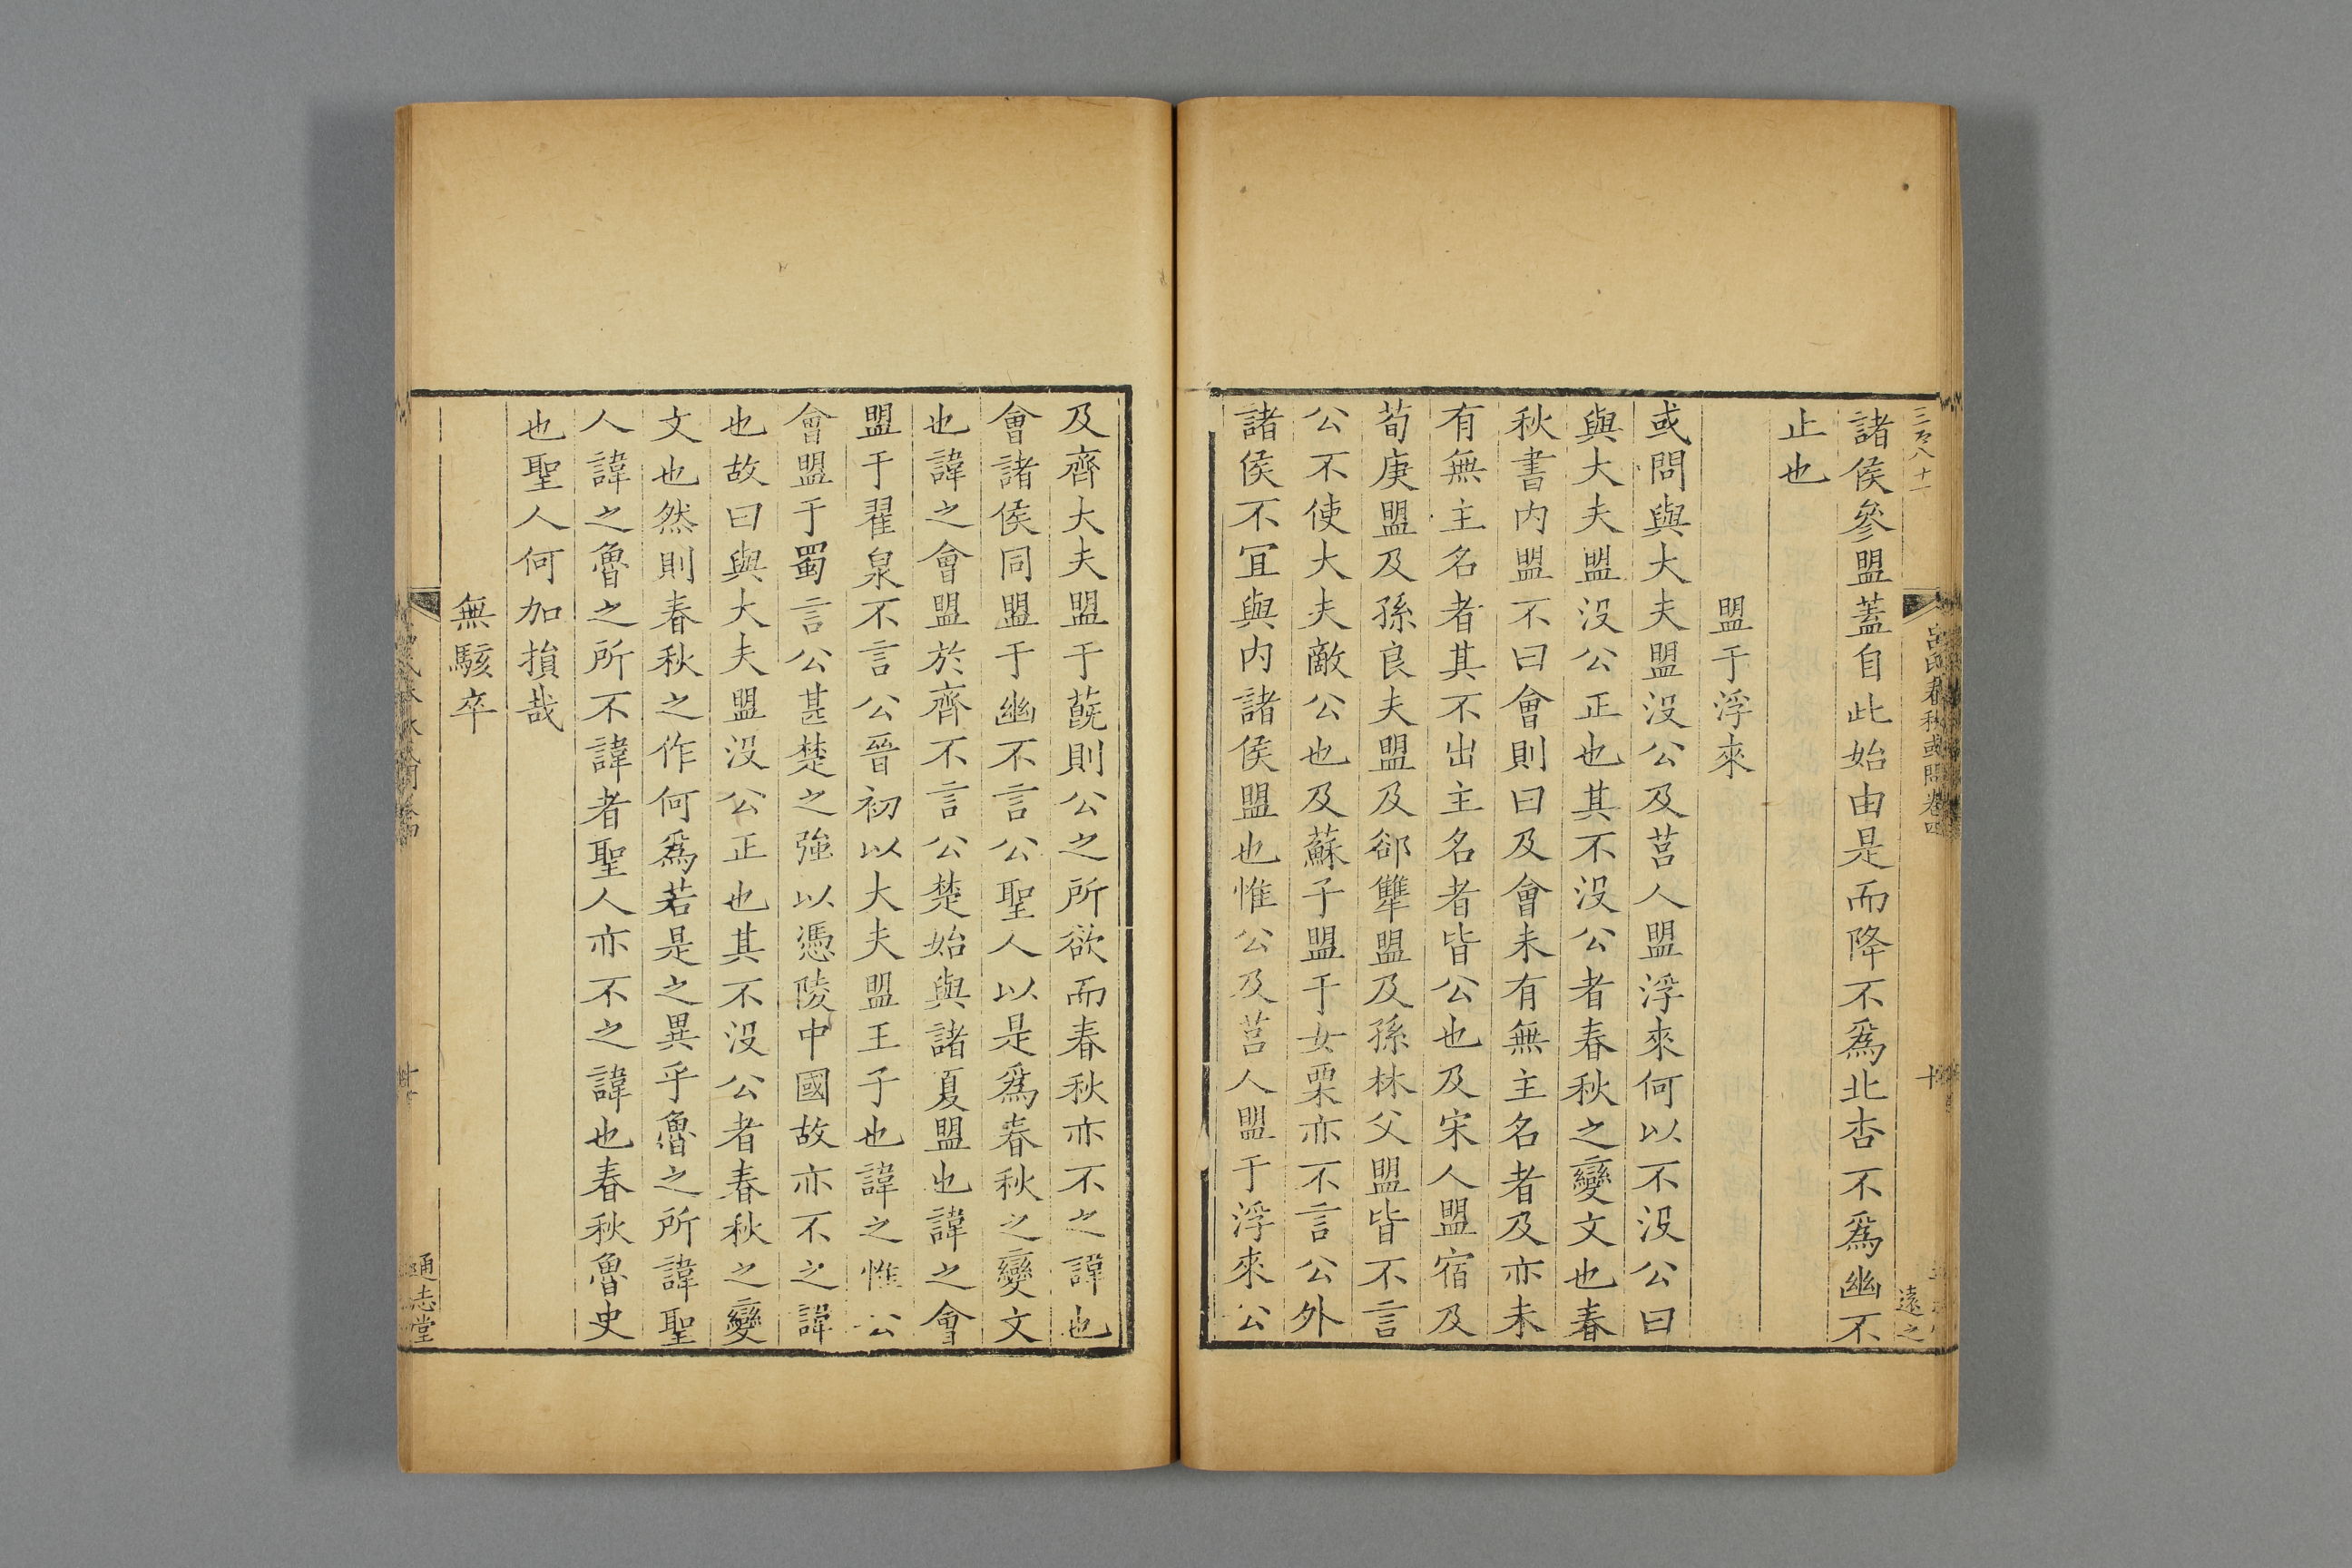 諸侯參盟蓋自此始由是而降不爲北杏不爲幽不
止也
盟于浮來
或問與大夫盟没公及莒人盟浮來何以不没公曰
與大夫盟没公正也其不没公者春秋之變文也春
秋書内盟不曰會則曰及會未有無主名者及亦未
有無主名者其不出主名者皆公也及宋人盟宿及
荀庚盟及孫良夫盟及郤犫盟及孫林父盟皆不言
公不使大夫敵公也及蘇子盟于女栗亦不言公外
諸侯不冝與内諸侯盟也惟公及莒人盟于浮來公
及齊大夫盟于蔇則公之所欲而春秋亦不之諱也
會諸侯同盟于幽不言公聖人以是爲春秋之變文
也諱之會盟於齊不言公楚始與諸夏盟也諱之會
盟于翟泉不言公晉初以大夫盟王子也諱之惟公
會盟于蜀言公甚楚之強以憑陵中國故亦不之諱
也故曰與大夫盟没公正也其不没公者春秋之變
文也然則春秋之作何爲若是之異乎魯之所諱聖
人諱之魯之所不諱者聖人亦不之諱也春秋魯史
也聖人何加損哉
無駭卒
通志堂